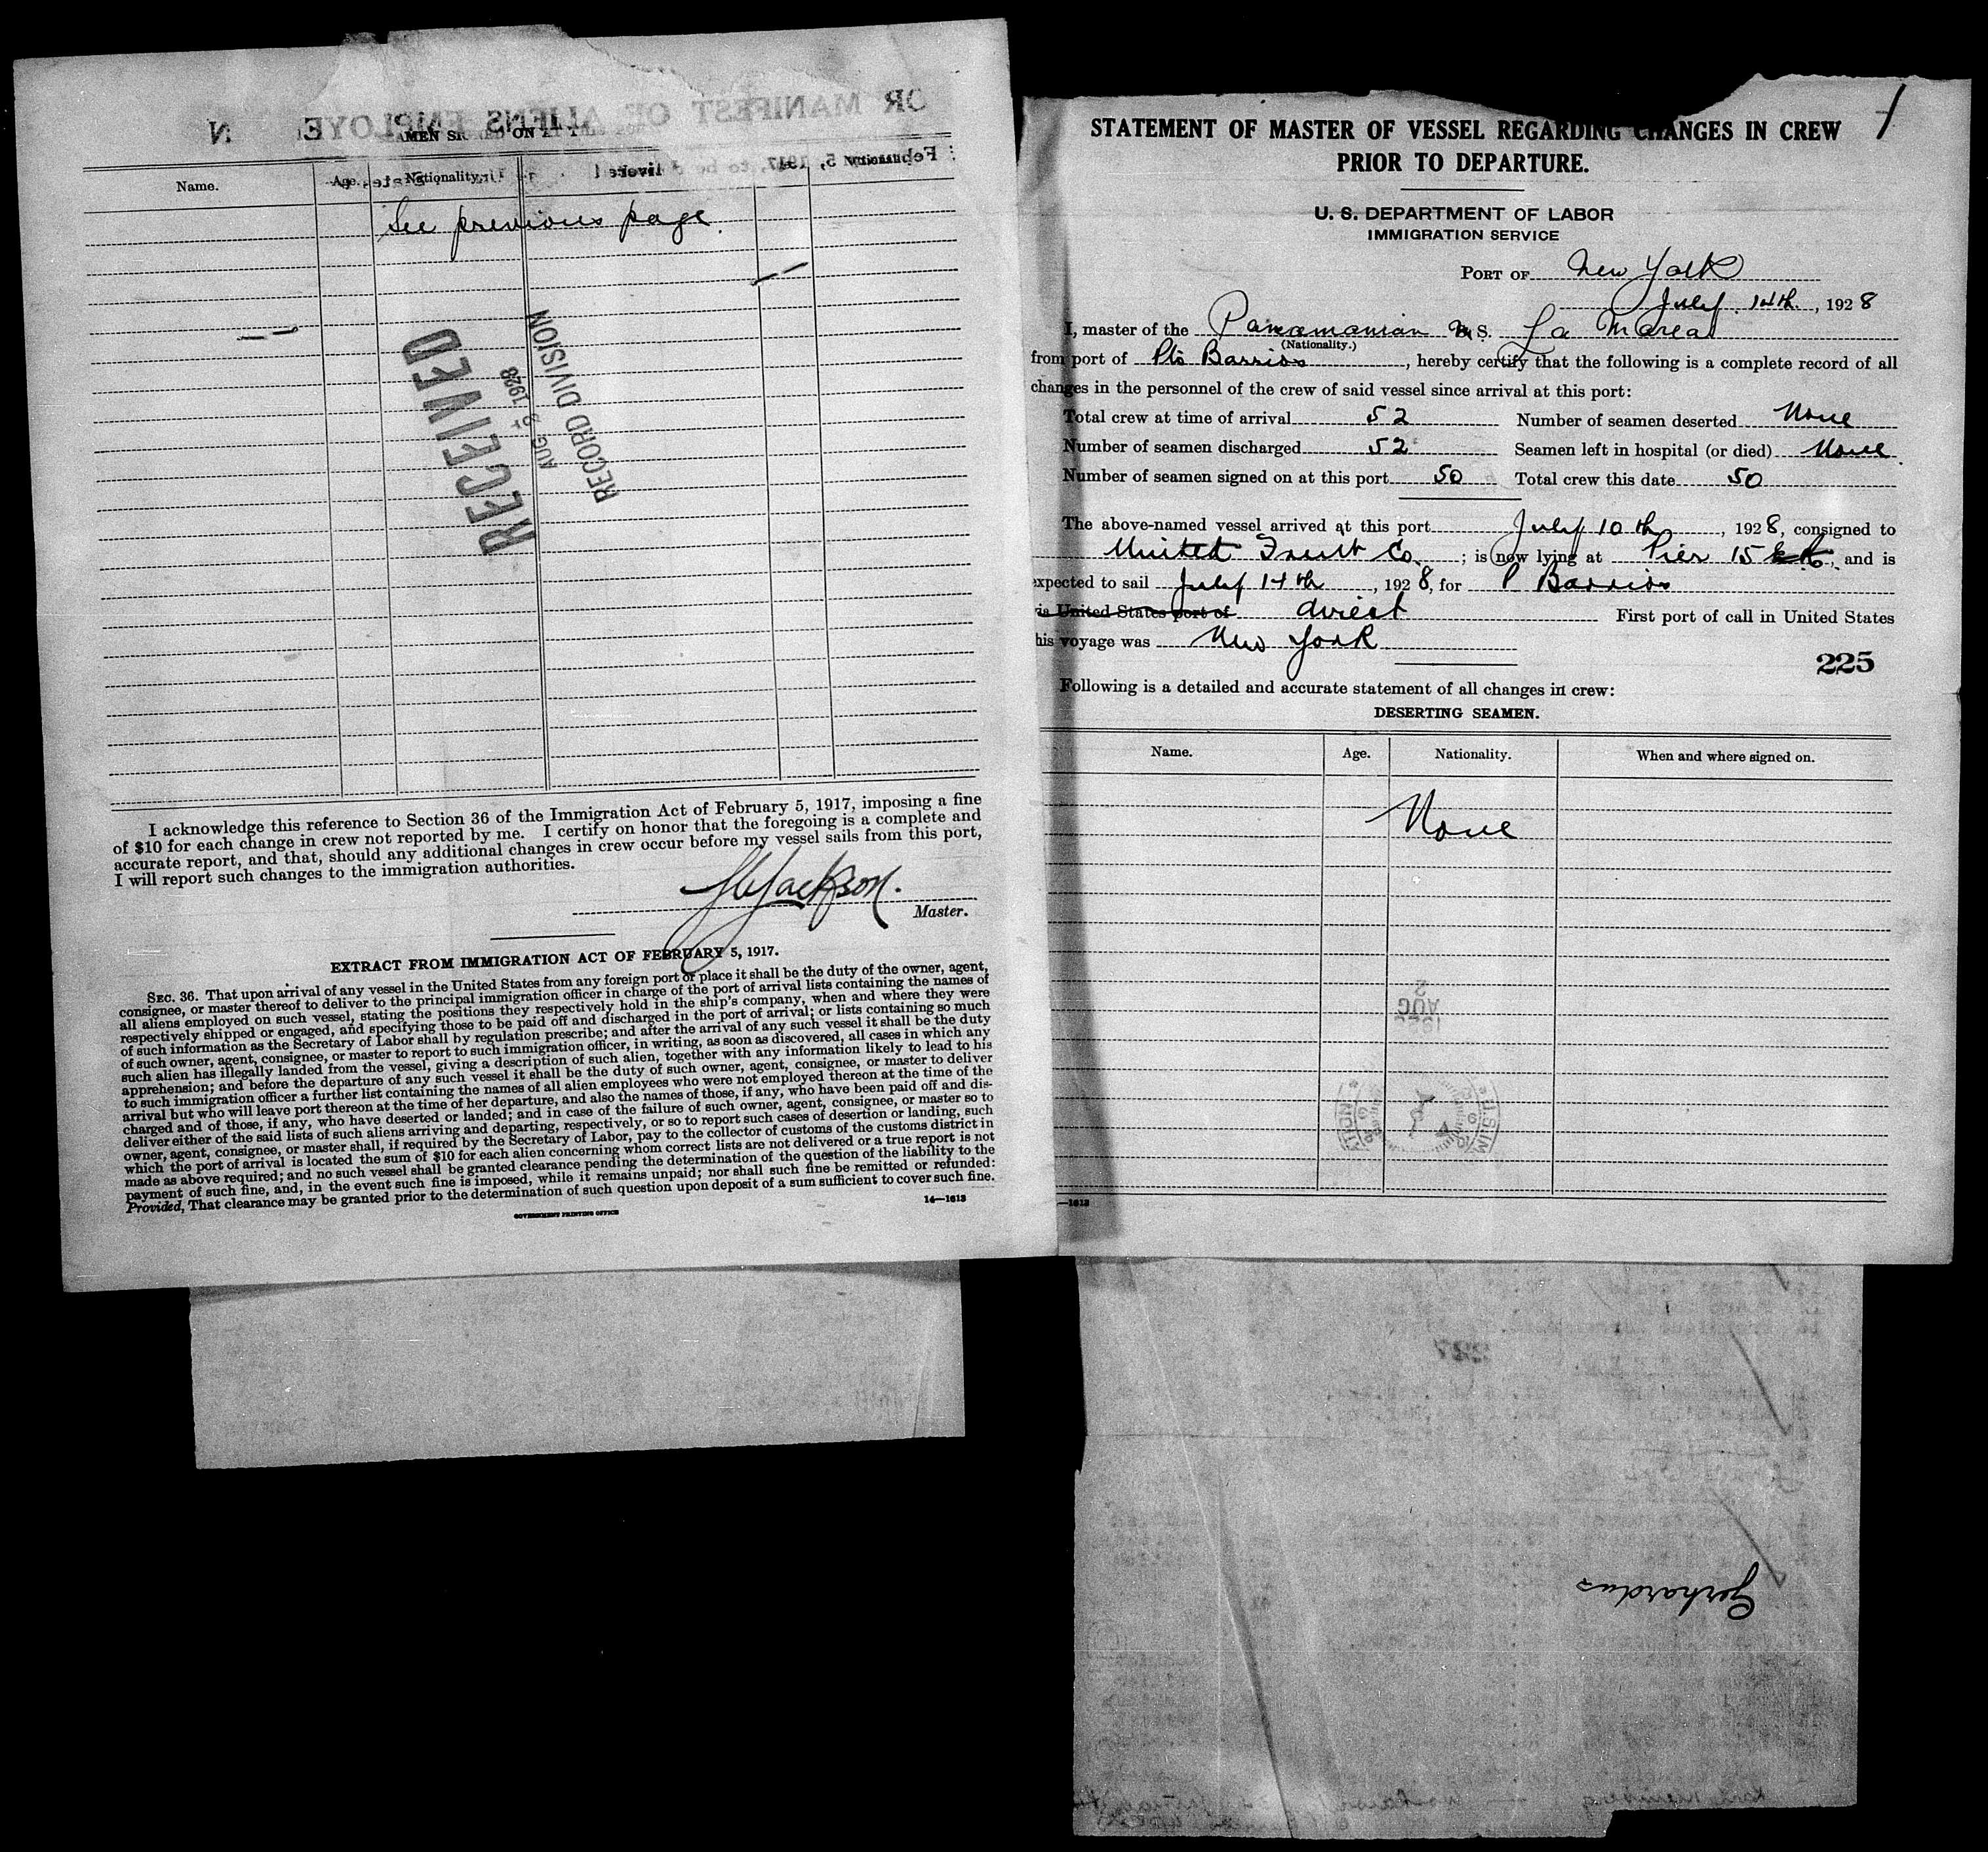 Name.
Age.
Nationality.
See previous page.
RECEIVED
AUG 9 1928
RECORD DIVISION
I acknowledge this reference to Section 36 of the Immigration Act of February 5, 1917, imposing a fine
of $10 for each change in crew not reported by me. I certify on honor that the foregoing is a complete and
accurate report, and that, should any additional changes in crew occur before my vessel sails from this port,
I will report such changes to the immigration authorities.
Jackson.
Master.
EXTRACT FROM IMMIGRATION ACT OF FEBRUARY 5, 1917.
SEC. 36. That upon arrival of any vessel in the United States from any foreign port or place it shall be the duty of the owner, agent,
consignee, or master thereof to deliver to the principal immigration officer in charge of the port of arrival lists containing the names of
all aliens employed on such vessel, stating the positions they respectively hold in the ship's company, when and where they were
respectively shipped or engaged, and specifying those to be paid off and discharged in the port of arrival; or lists containing so much
of such information as the Secretary of Labor shall by regulation prescribe; and after the arrival of any such vessel it shall be the duty
of such owner, agent, consignee, or master to report to such immigration officer, in writing, as soon as discovered, all cases in which any
such alien has illegally landed from the vessel, giving a description of such alien, together with any information likely to lead to his
apprehension; and before the departure of any such vessel it shall be the duty of such owner, agent, consignee, or master to deliver
to such immigration officer a further list containing the names of all alien employees who were not employed thereon at the time of the
arrival but who will leave port thereon at the time of her departure, and also the names of those, if any, who have been paid off and dis-
charged and of those, if any, who have deserted or landed; and in case of the failure of such owner, agent, consignee, or master so to
deliver either of the said lists of such aliens arriving and departing, respectively, or so to report such cases of desertion or landing, such
owner, agent, consignee, or master shall, if required by the Secretary of Labor, pay to the collector of customs of the customs district in
which the port of arrival is located the sum of $10 for each alien concerning whom correct lists are not delivered or a true report is not
made as above required; and no such vessel shall be granted clearance pending the determination of the question of the liability to the
payment of such fine, and, in the event such fine is imposed, while it remains unpaid; nor shall such fine be remitted or refunded:
Provided, That clearance may be granted prior to the determination of such question upon deposit of a sum sufficient to cover such fine.
14—1613
GOVERNMENT PRINTING OFFICE
STATEMENT OF MASTER OF VESSEL REGARDING CHANGES IN CREW
PRIOR TO DEPARTURE.
U. S. DEPARTMENT OF LABOR
IMMIGRATION SERVICE
PORT OF New York
July 14th, 1928
I, master of the Panamanian S. La Marea
(Nationality.)
from port of Pto Barrios, hereby certify that the following is a complete record of all
changes in the personnel of the crew of said vessel since arrival at this port:
Total crew at time of arrival 52 Number of seamen deserted None
Number of seamen discharged 52 Seamen left in hospital (or died) None
Number of seamen signed on at this port 50 Total crew this date 50
The above-named vessel arrived at this port July 10th, 1928, consigned to
United Fruit Co.; is now lying at Pier 15, and is
expected to sail July 14th, 1928, for P Barrios
via United States port of direct First port of call in United States
this voyage was New York
225
Following is a detailed and accurate statement of all changes in crew:
DESERTING SEAMEN.
Name. Age. Nationality. When and where signed on.
None
AUG
—1613
Gerhardus